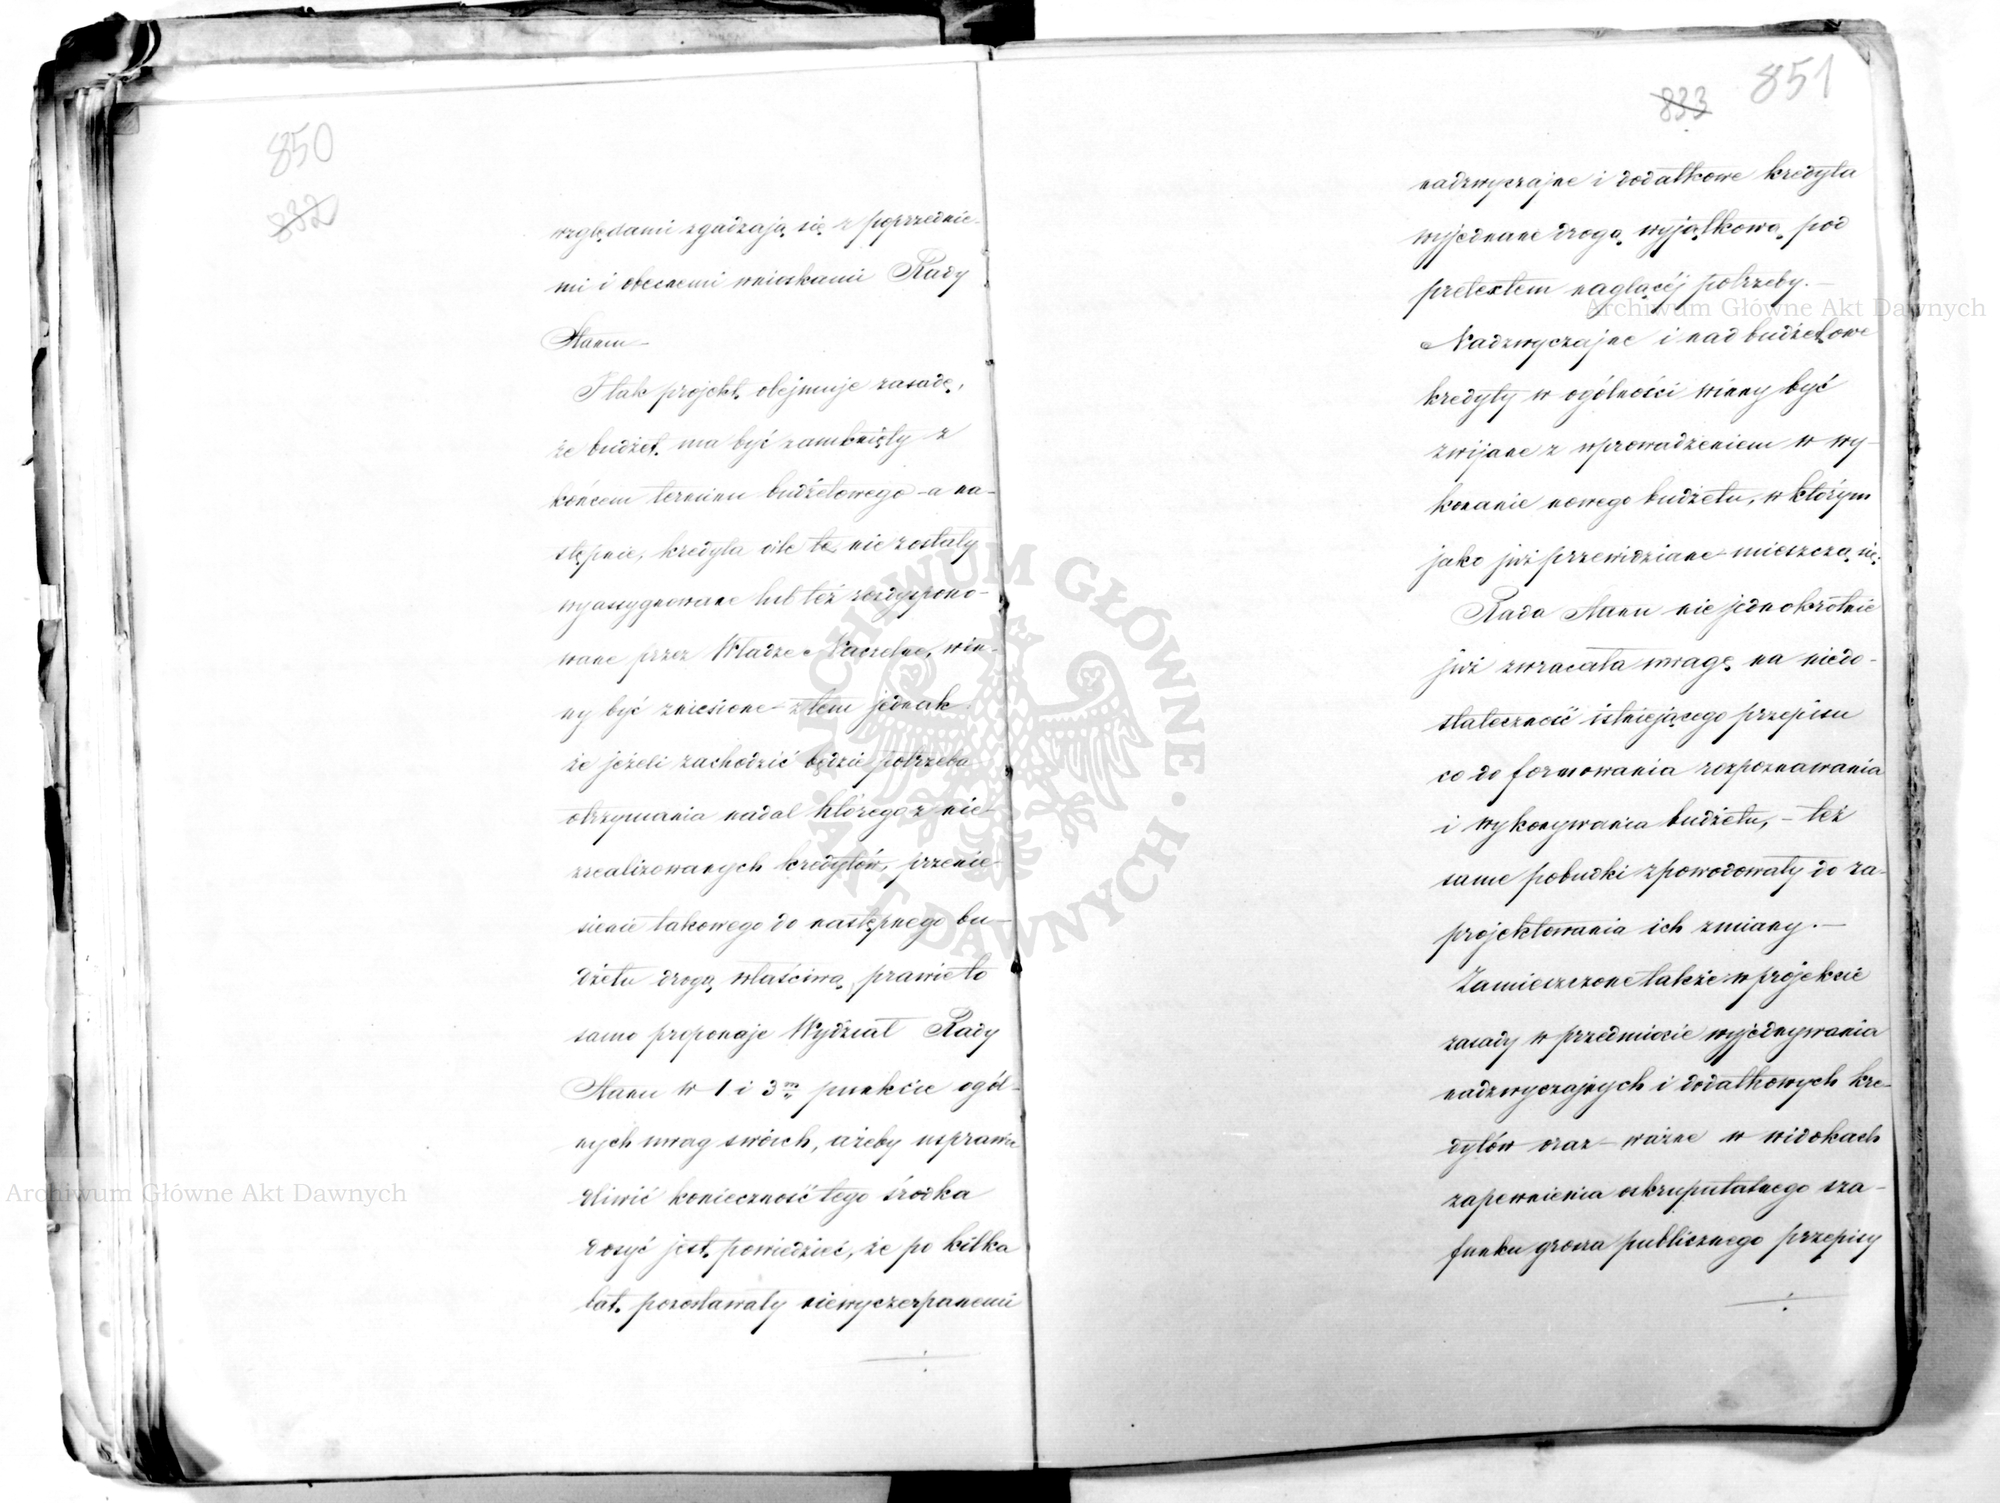 850
832
względami zgadzają się z poprzednie-
mi i obecnemi wnioskami Rady
Stanu
I tak projekt obejmuje zasadę,
że budżet ma być zamknięty z
końcem terminu budżetowego - a na-
stępnie, kredyta o ile te nie zostały
wyassygnowane lub też rozdyspono-
wane przez Władze Naczelne, win-
ny być zniesione z tem jednak
że jeżeli zachodzić będzie potrzeba
otrzymania nadal któregoż nie-
zrealizowanych kredytów, przenie-
sienie takowego do następnego bu-
dżetu drogą właściwą, prawie to
samo proponuje Wydział Rady
Stanu w 1 i 3m punkcie ogól-
nych uwag swoich, ażeby usprawie
dliwić konieczność tego środka
dosyć jest powiedzieć, że po kilka
lat pozostawały niewyczerpanemi
833 851
nadzwyczajne i dodatkowe kredyta
wyjednane drogą wyjątkową pod
pretextem naglącéj potrzeby. -
Nadzwyczajne i nadbudżetowe
kredyty w ogólności winny być
zwijane z wprowadzeniem w wy-
konanie nowego budżetu, w którym
jako już przewidziane mieszczą się.
Rada Stanu niejednokrotnie
już zwracała uwagę na niedo-
stateczność istniejącego przepisu
co do formowania rozpoznawania
i wykonywania budżetu, - też
same pobudki spowodowały do za-
projektowania ich zmiany. -
Zamieszczone także w projekcie
zasady w przedmiocie wyjednywania
nadzwyczajnych i dodatkowych kre-
dytów oraz ważne w widokach
zapewnienia oskrupulatnego sza-
funku grosza publicznego przepisy
Archiwum Główne Akt Dawnych
Archiwum Główne Akt Dawnych
ARCHIWUM GŁÓWNE · AKT DAWNYCH ·